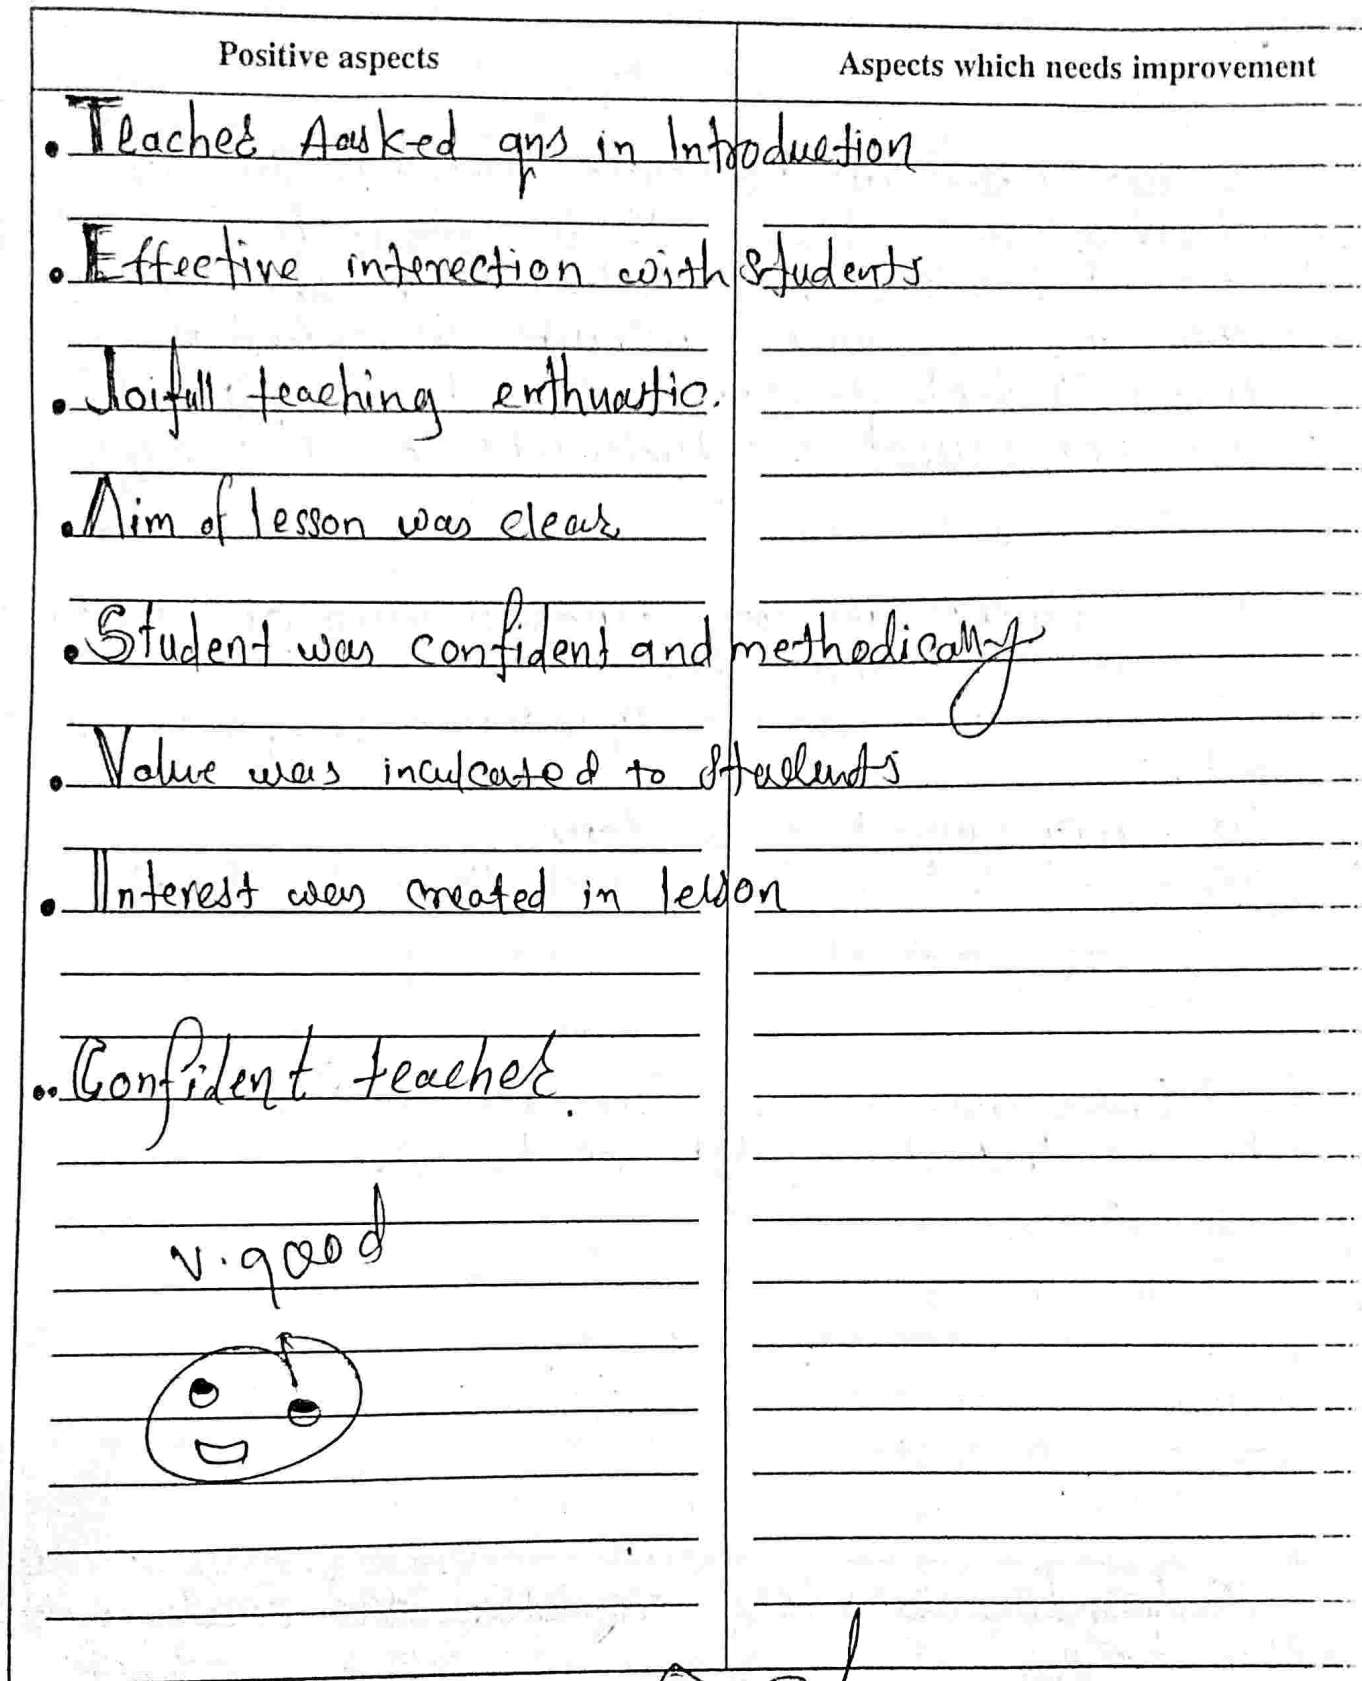 Positive aspects
Aspects which needs improvement
• Teacher Aasked qns in Introduction
• Effective interection with students
• Joifull teaching enthuastic.
• Aim of lesson was clear
• Student was confident and methodically
• Value was inculcated to students
• Interest was created in lesson
•• Confident teacher.
v. good